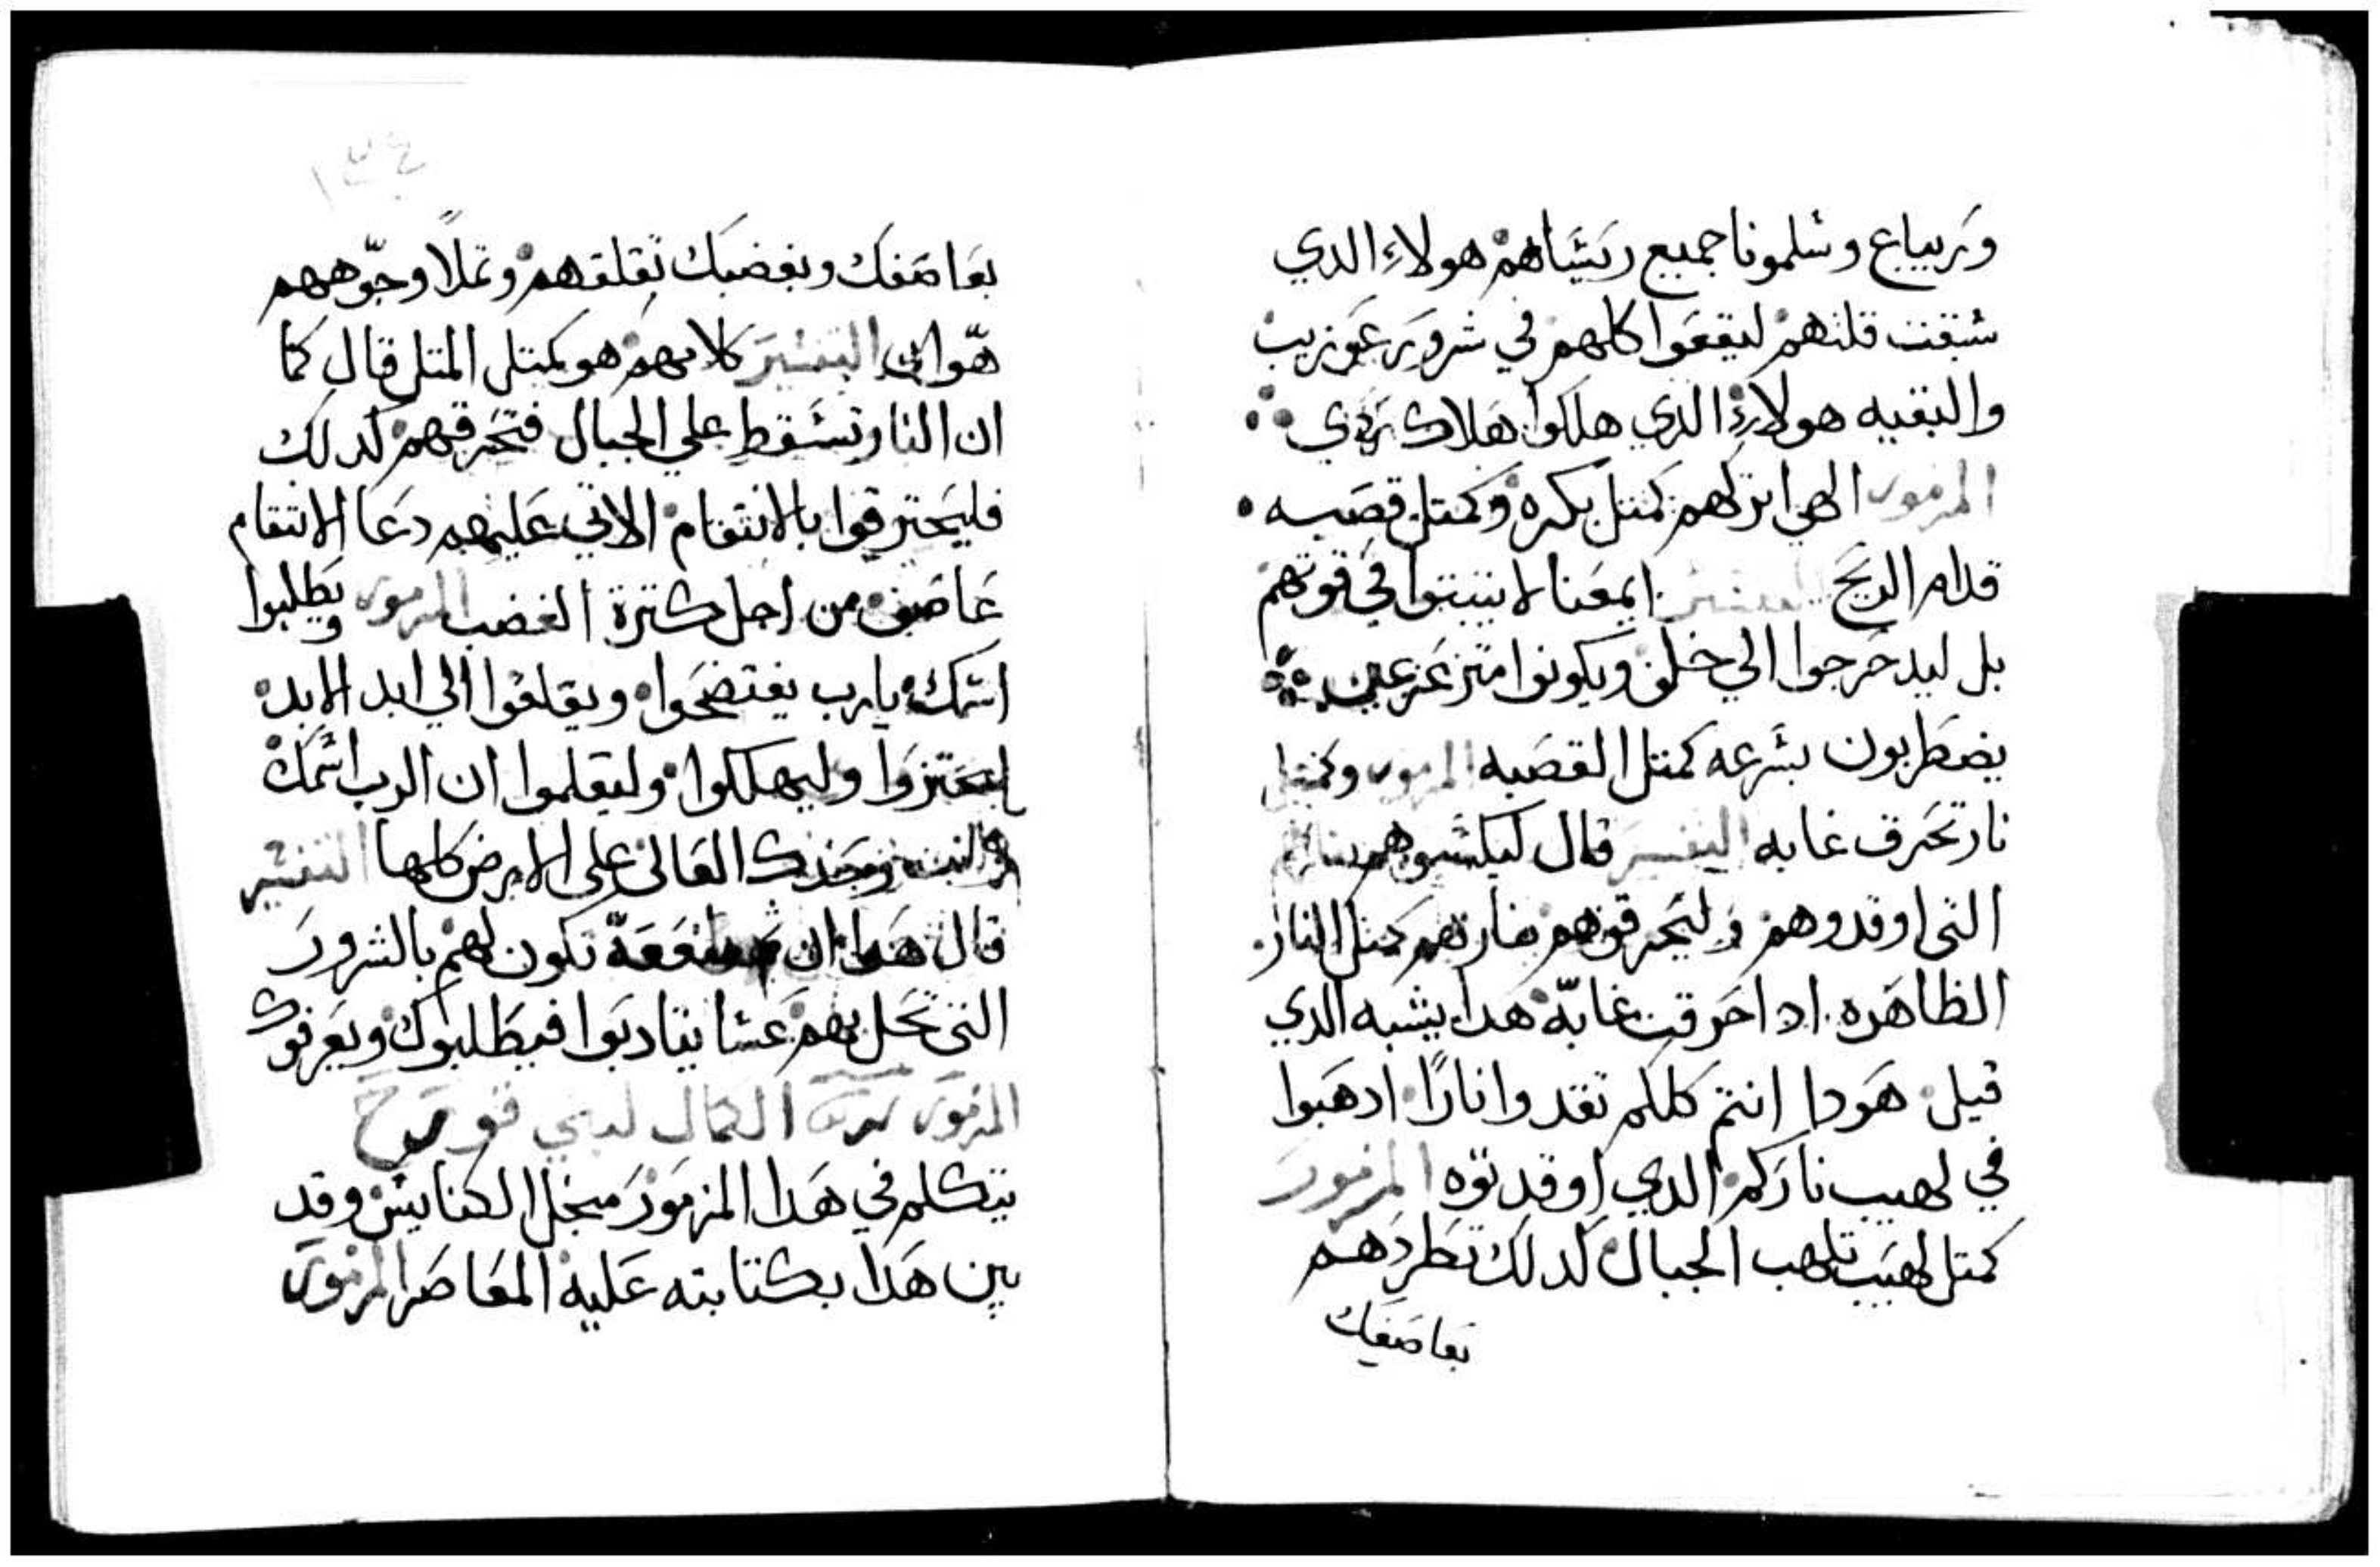 وزيباع وسلمونا جميع ريساهم هولاء الدي
سبقت قلتهم ليقعوا كلهم في شرور عوزيب
والبقيه هولاء الدي هلكوا هلاك ردي
المزمور الهي اتركهم كمتل بكره وكمتل قصبه
قدام الريح التفسير ايمعنا لا يتبتوا في قوتهم
بل ليدحرجوا الي خلف ويكونوا متزعزعين
يضطربون بسرعه كمتل القصبه المزمور وكمتل
نار تحرق غابه التفسير قال ليكشوهم
التى اوقدوهم وليحرقوهم بنارهم كمتل النار
الظاهره ادا احرقت غابة هدا يشبه الدي
قيل هودا انتم كلكم تقدوا نارًا ادهبوا
في لهيب ناركم الدي اوقدتوه المزمور
كمتل لهيب تلهب الجبال كدلك تطردهم
بعاصفك
١٣٤
بعاصفك وبغضبك تقلقهم وتملا وجوههم
هوان التفسير كلامهم هو كمتل المتل قال كما
ان النار تسقط علي الجبال فتحرقهم كدلك
فليحترقوا بالانتقام الاتي عليهم دعا الانتقام
عاصف من اجل كترة الغضب المزمور ويطلبوا
اسمك يارب يفتضحوا ويقلقوا الي ابد الابد
وليهلكوا وليعلموا ان الرب اسمك
وحدك العالى على الارض كلها التفسير
قال هدا ان منفعة تكون لهم بالشرور
التى تحل بهم عسا يتادبوا فيطلبوك ويعرفوك
المزمور الكمال لبني قورح
يتكلم في هدا المزمور من اجل الكنايس وقد
بين هدا بكتابته عليه المعاصر المزمور